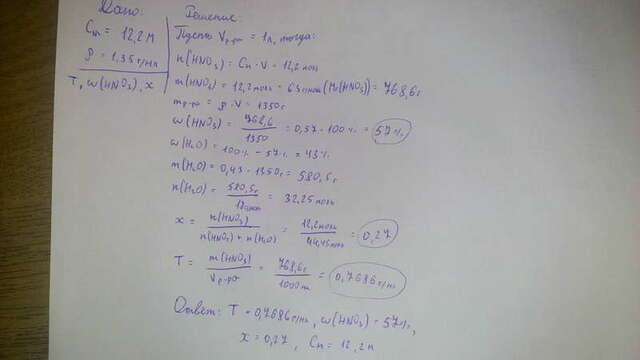 Дано:
C_м = 12,2 М
ρ = 1,35 г/мл
T, ω(HNO₃), x
Решение:
Пусть V_р-ра = 1л, тогда:
n(HNO₃) = Cм · V = 12,2 моль
m(HNO₃) = 12,2 моль · 63 г/моль (Mr(HNO₃)) = 768,6 г
m_р-ра = ρ · V = 1350 г
ω(HNO₃) = 768,6 / 1350 = 0,57 · 100% = 57%
ω(H₂O) = 100% - 57% = 43%
m(H₂O) = 0,43 · 1350 г = 580,5 г
n(H₂O) = 580,5 г / 18 г/моль = 32,25 моль
x = n(HNO₃) / n(HNO₃) + n(H₂O) = 12,2 моль / 44,45 моль = 0,27
T = m(HNO₃) / V_р-ра = 768,6 г / 1000 мл = 0,7686 г/мл
Ответ: T = 0,7686 г/мл, ω(HNO₃) = 57%,
x = 0,27, Cм = 12,2 М